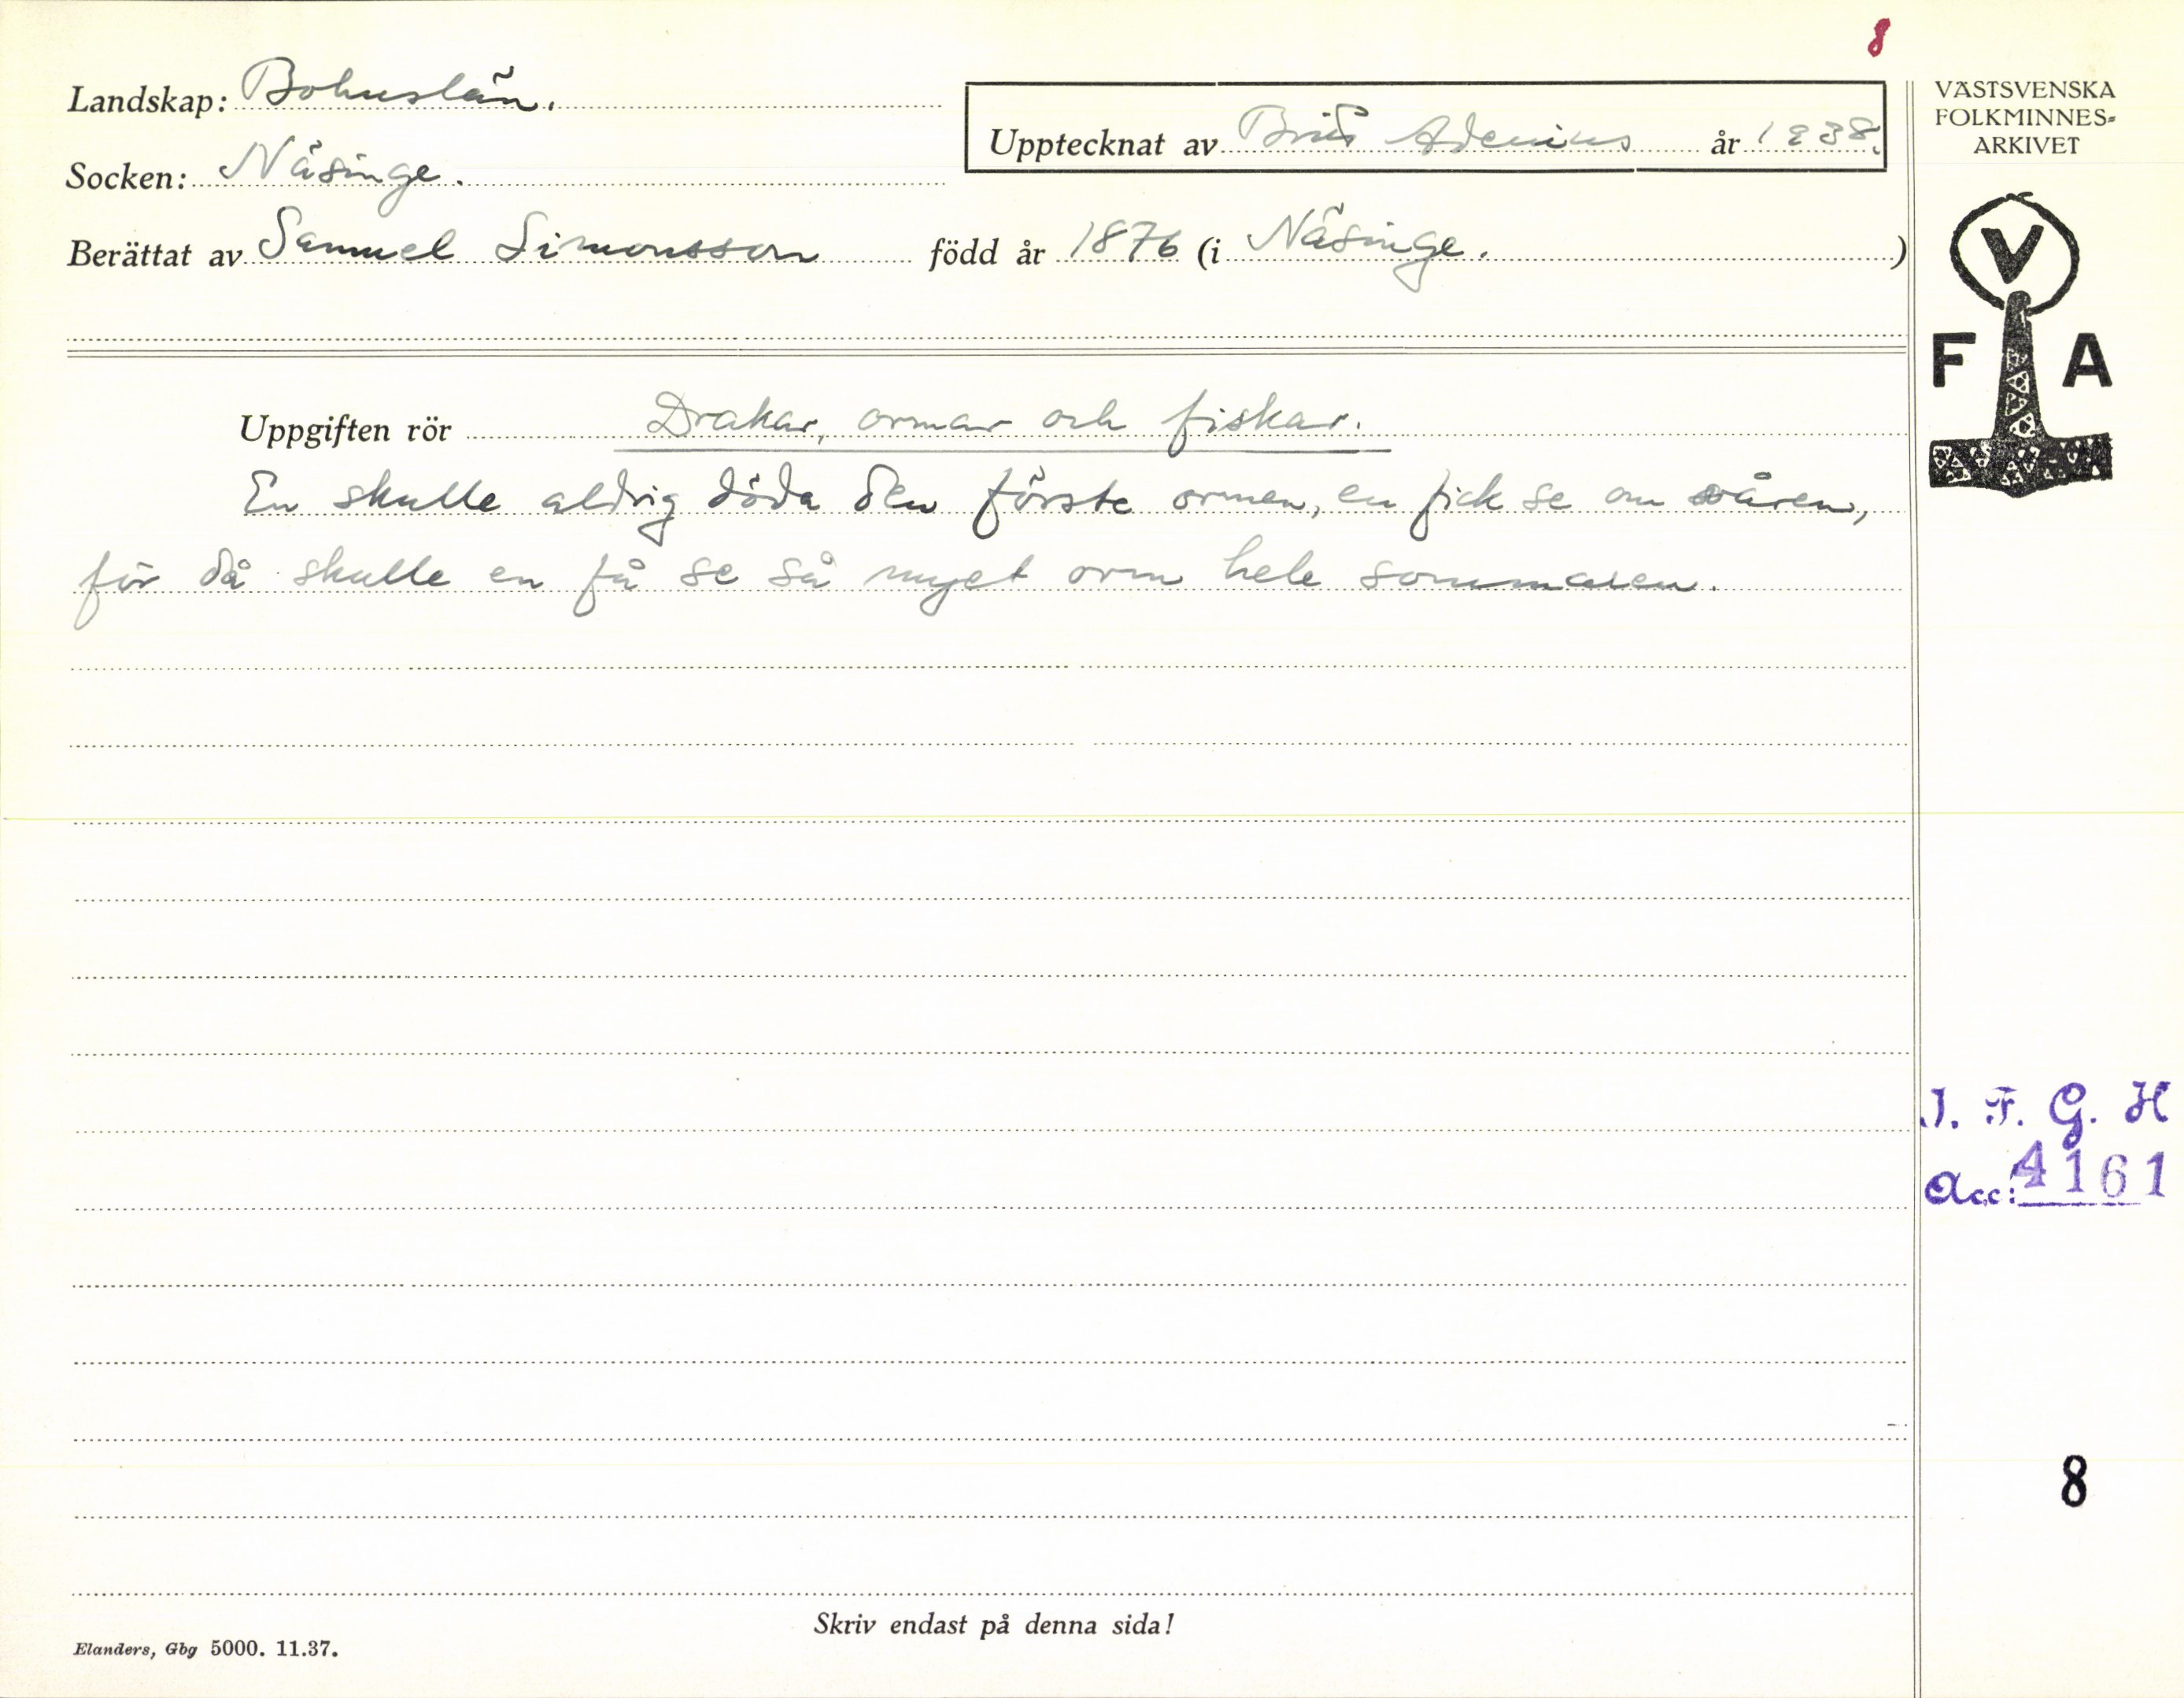 8
Landskap: Bohuslän.
Upptecknat av Brita Adenius år 1938.
Socken: Näsinge.
Berättat av Samuel Simonsson född år 1876 (i Näsinge.)
VÄSTSVENSKA
FOLKMINNES-
ARKIVET
V
F A
Uppgiften rör Drakar, ormar och fiskar.
En skulle aldrig döda den förste ormen, en fick se om våren,
för då skulle en få se så myet orm hele sommaren.
I. F. G. H
Acc: 4161
8
Skriv endast på denna sida!
Elanders, Gbg 5000. 11.37.